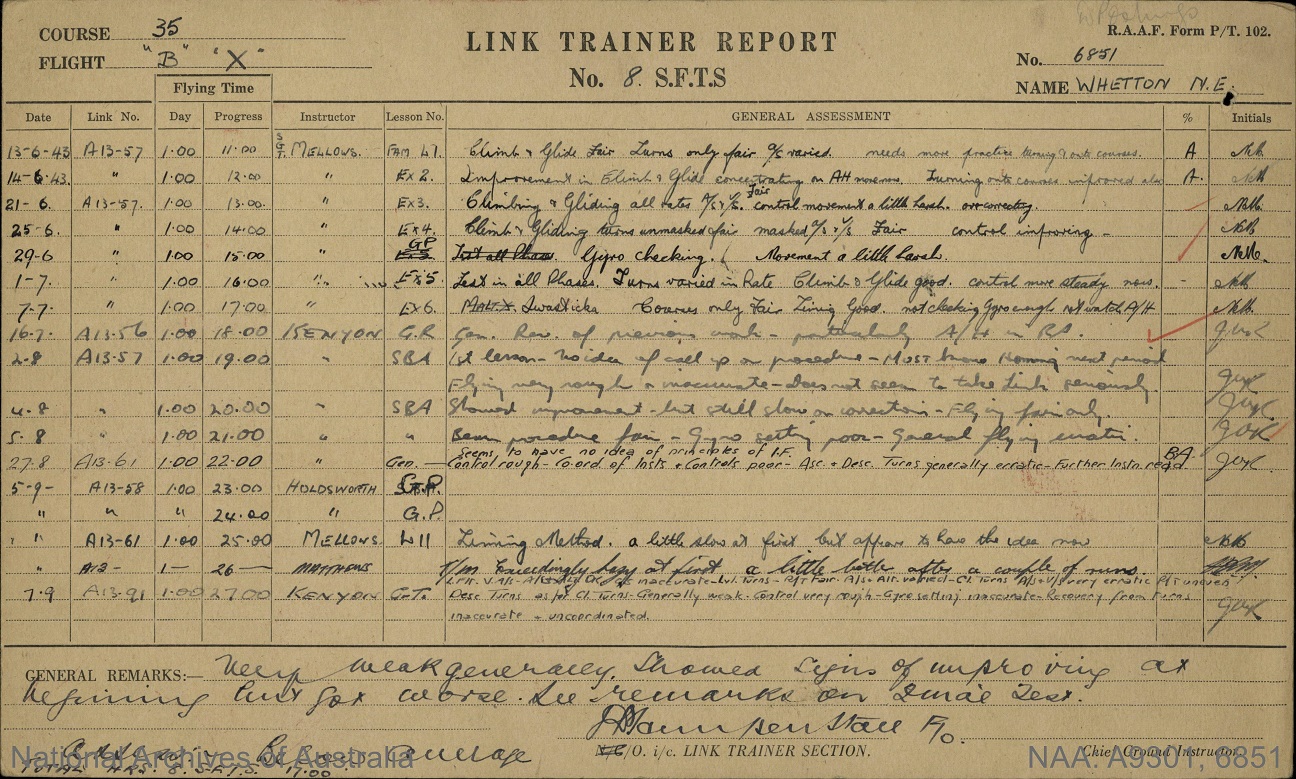 COURSE 35
FLIGHT "B" "X"
LINK TRAINER REPORT
No. 8. S.F.T.S
R.A.A.F. Form P/T. 102.
No. 6851
NAME WHETTON N.E.
Flying Time
Date Link No. Day Progress Instructor Lesson No. GENERAL ASSESSMENT % Initials
13-6-43 A13-57 1.00 11.00 SGT. MELLOWS. FAM L7. Climb & Glide Fair Turns only fair varied. needs more practice turning onto courses. A
14-6-43. " 1.00 12.00 " Ex 2. Improvement in Climb & Glide concentrating on AH Turning onto courses improved also A.
21-6. A13-57. 1.00 13.00. " Ex3. Climbing & Gliding all rates Fair control movement a little harsh. overcorrecting.
25-6. " 1.00 14.00 " Ex4. Climb & Gliding turns unmasked fair masked Fair control improving -
29-6 " 1.00 15.00 " GP Gyro checking. Movement a little harsh.
1-7. " 1.00 16.00 " Ex5 Test in all Phases. Turns varied in Rate Climb & Glide good. control more steady now.
7.7. " 1.00 17.00 " Ex6. Swasticka Courses only Fair Timing Good. not checking Gyro enough not watch A/H
16-7. A13-56 1.00 18.00 KENYON G.R Gen. Rev. of previous work - particularly A/H in
2-8 A13-57 1.00 19.00 " SBA 1st lesson - No idea of call up or procedure - Must know Homing next period
Flying very rough & inaccurate - Does not seem to take Link seriously
4.8 " 1.00 20.00 " SBA Showed improvement - but still slow on correction - Flying fair only.
5.8 " 1.00 21.00 " " Beam procedure fair - Gyro setting poor - General flying erratic.
seems to have no idea of principles of I.F.
27.8 A13-61 1.00 22.00 " Gen. - Control rough - Co-ord. of Insts & Controls poor - Asc. & Desc. Turns generally erratic - Further Instn. reqd. BA.
5-9- A13-58 1.00 23.00 HOLDSWORTH G.P.
" " " 24.00 " G.P.
" " A13-61 1.00 25.00 MELLOWS L11 Timing Method. a little slow at first but appears to have the idea now
" A13- 1- 26- MATTHEWS T/M Exceedingly hazy at first a little better after a couple of runs.
inaccurate - Lvl. Turns - fair. varied - Cl. Turns very erratic uneven
7.9 A13-91 1.00 27.00 KENYON G.T. Desc Turns as for Cl. Turns - Generally weak - Control very rough - Gyro setting inaccurate - Recovery from turns
inaccurate & uncoordinated.
GENERAL REMARKS:- Very weak generally. Showed signs of improving at
begining but got worse. See remarks on Final Test.
F/O.
O. i/c. LINK TRAINER SECTION.
Chief Ground Instructor.
Below Average
TOTAL HRS. 8. S.F.T.S. 17.00
National Archives of Australia
NAA: A9301, 6851